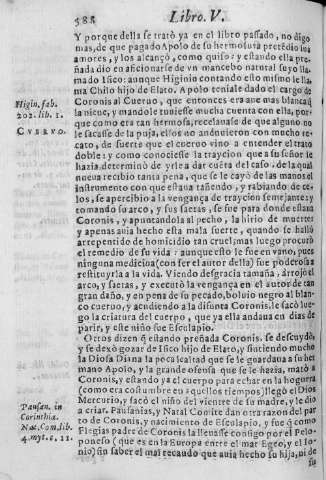 588
Libro. V.
Y porque della se trató ya en el libro passado, no digo
mas, de que pagado Apolo de su hermosura pretēdio sus
amores, y los alcançó, como quiso: y estando ella pre-
ñada dio en aficionarse de vn mancebo natural suyo lla-
mado Isico: aunque Higinio contando esto mismo le lla-
ma Chilo hijo de Elato. Apolo teniale dado el cargo de
Coronis al Cueruo, que entonces era aue mas blanca q̄
la nieue, y mandole tuuiesse mucha cuenta con ella, por-
que como era tan hermosa, recelauase de que alguno no
le sacasse de la puja, ellos no anduuieron con mucho re-
cato, de suerte que el cueruo vino a entender el trato
doble: y como conociesse la traycion que a su señor le
hazia determinò de yrle a dar cuēta del caso, de la qual
nueua recibio tanta pena, que se le cayò de las manos el
instrumento con que estaua tañendo, y rabiando de ce-
los, se apercibio a la vengança de traycion semejante: y
tomando su arco, y sus saetas, se fue para donde estaua
Coronis, y apuntandola al pecho, la hirio de muerte:
y apenas auia hecho esta mala suerte, quando se halló
arrepentido de homicidio tan cruel; mas luego procurò
el remedio de su vida: aunque esto le fue en vano, pues
ninguna medicina (con ser el autor della) fue poderosa a
restituyrla a la vida. Viendo desgracia tamaña, arrojò el
arco, y saetas, y executò la vengança en el autor de tan
gran daño, y en pena de su pecado, boluio negro al blan-
co cueruo, y acudiendo a la difunta Coronis, le sacò lue-
go la criatura del cuerpo, que ya ella andaua en dias de
parir, y este niño fue Esculapio.
Otros dizen q̄ estando preñada Coronis, se descuydò,
y se dexò gozar de Isico hijo de Elato, y sintiendo mucho
la Diosa Diana la poca lealtad que se le guardaua a su her
mano Apolo, y la grande ofensa que se le hazia, matò a
Coronis, y estando ya el cuerpo para echar en la hoguera
(como era costumbre en aquellos tiempos) llegò el Dios
Mercurio, y sacò el niño del vientre de su madre, y le dio
a criar. Pausanias, y Natal Comite dan otra razon del par
to de Coronis, y nacimiento de Esculapio, y fue q̄ como
Flegias padre de Coronis la lleuasse consigo por el Pelo-
poneso (que es en la Europa entre el mar Egeo, y el Io-
nio) sin saber el mal recaudo que auia hecho su hija, ni de
Higin. fab.
202. lib. 1.
CVERVO.
Pausan. in
Corinthia.
Na. Com. lib.
4. myt. c. 11.